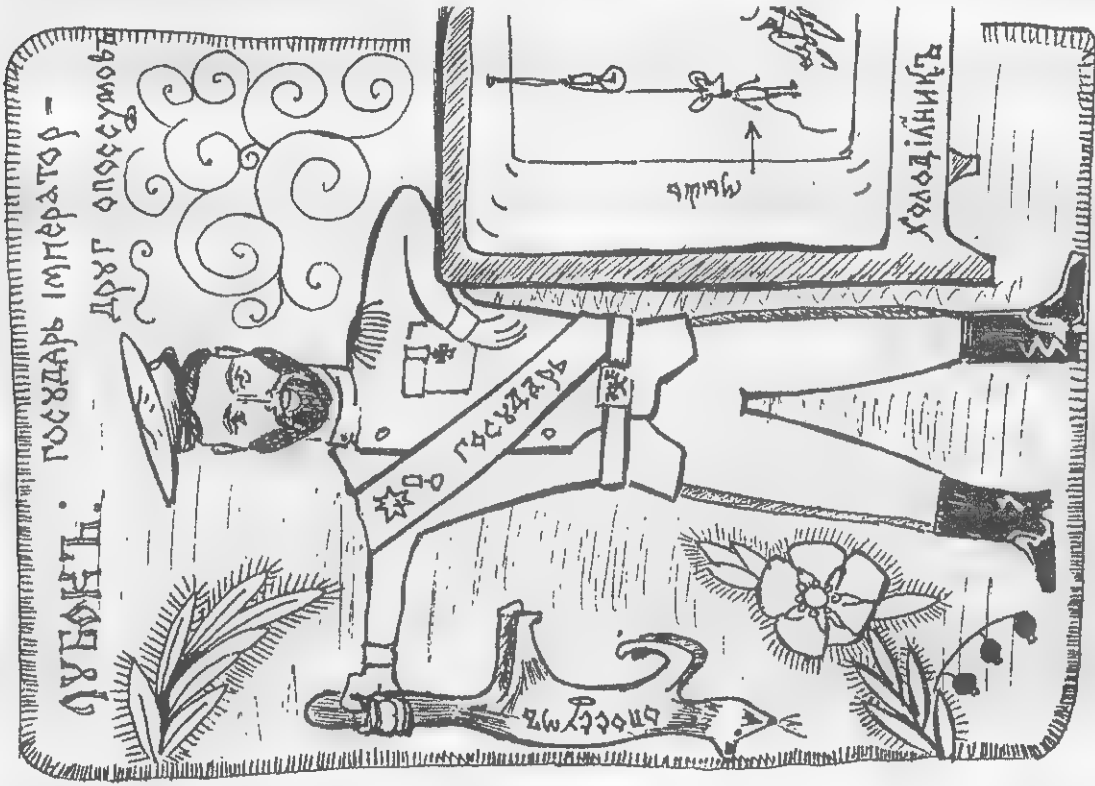 ЛУБОКЪ. ГОСУДАРЬ ІМПЕРАТОР –
ДРУГ ОПОССУМОВЪ
ГОСУДАРЬ
ОПОССУМЪ
мышь
ХОЛОДІЛНИКЪ